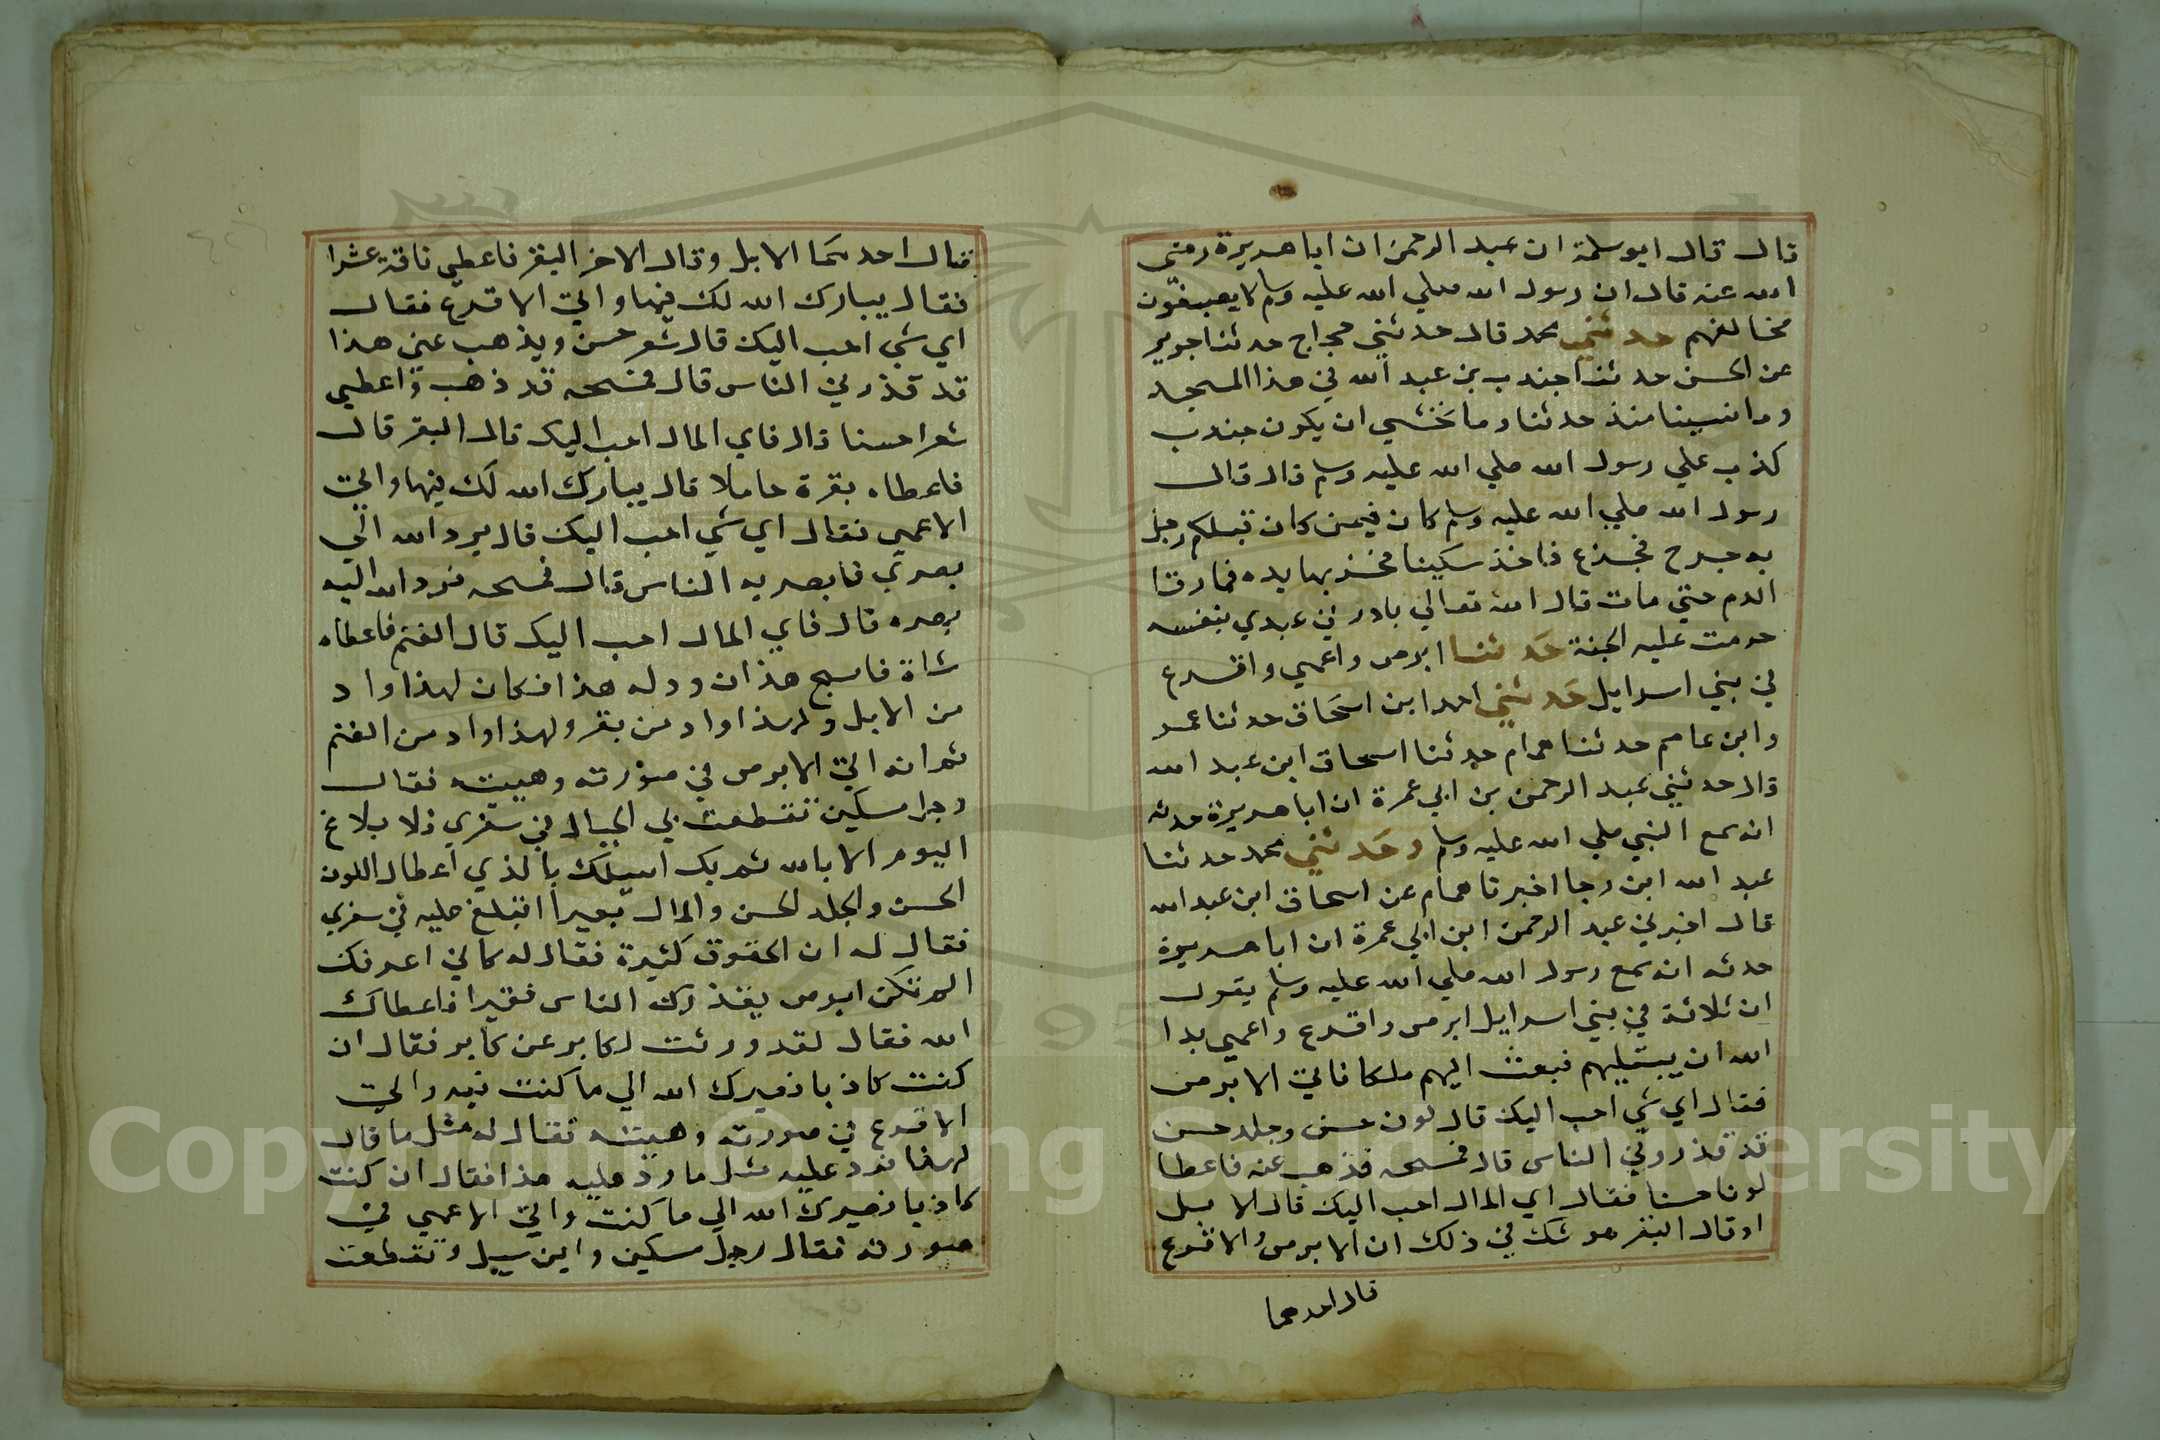 قال قال ابو سلمة ان عبد الرحمن ان ابا هريرة رضي
الله عنه قال ان رسول الله صلي الله عليه وسلم لا يصبغون
مخالفهم حدثني محمد قال حدثني حجاج حدثنا جرير
عن الحسن حدثنا جندب بن عبد الله في هذا المسجد
وما نسينا منذ حدثنا وما نخشي ان يكون جندب
كذب علي رسول الله صلي الله عليه وسلم قال قال
رسول الله صلي الله عليه وسلم كان فيمن كان قبلكم رجل
به جرح فجزع فاخذ سكينا فحز بها يده فما رقا
الدم حتي مات قال الله تعالي بادرني عبدي بنفسه
حرمت عليه الجنة حدثنا ابرص واعمي واقرع
في بني اسرايل حدثني احمد ابن اسحاق حدثنا عمر
وابن عاصم حدثنا همام حدثنا اسحاق ابن عبد الله
قال حدثني عبد الرحمن بن ابي عمرة ان ابا هريرة حدثه
انه سمع النبي صلي الله عليه وسلم وحدثني محمد حدثنا
عبد الله ابن رجا اخبرنا همام عن اسحاق ابن عبد الله
قال اخبرني عبد الرحمن ابن ابي عمرة ان ابا هريرة
حدثه انه سمع رسول الله صلي الله عليه وسلم يقول
ان ثلاثة في بني اسرايل ابرص واقرع واعمي بدا
الله ان يبتليهم فبعث اليهم ملكا فاتي الابرص
فقال اي شي احب اليك قال لون حسن وجلد حسن
قد قذرروني الناس قال فمسحه فذهب عنه فاعطا
لونا حسنا فقال اي المال احب اليك قال الابل
او قال البقر هو شك في ذلك ان الابرص والاقرع
قال احدهما
قال احدهما الابل وقال الاخر البقر فاعطي ناقة عشرا
فقال يبارك الله لك فيها واتي الاقرع فقال
اي شي احب اليك قال شعر حسن ويذهب عني هذا
قد قذرني الناس قال فمسحه قد ذهب واعطي
شعرا حسنا قال فاي المال احب اليك قال البقر قال
فاعطاه بقرة حاملا قال يبارك الله لك فيها واتي
الاعمي فقال اي شي احب اليك قال يرد الله الي
بصري فابصر به الناس قال فمسحه فرد الله اليه
بصره قال فاي المال احب اليك قال الغنم فاعطاه
شاة فاسبح هذان وولد هذا فكان لهذا واد
من الابل ولهذا واد من بقر ولهذا واد من الغنم
ثم انه اتي الابرص في صورته وهيته فقال
رجل مسكين تقطعت بي الجبال في سفري فلا بلاغ
اليوم الا بالله ثم بك اسيلك بالذي اعطاك اللون
الحسن والجلد الحسن والمال بعيرا اتبلغ عليه في سفري
فقال له ان الحقوق كثيرة فقال له كاني اعرفك
الم تكن ابرص يقذرك الناس فقيرا فاعطاك
الله فقال لقد ورثت لكابر عن كابر فقال ان
كنت كاذبا فصيرك الله الي ما كنت فيه واتي
الاقرع في صورته وهيته فقال له مثل ما قال
لهذا فرد عليه مثل ما رد عليه هذا فقال ان كنت
كاذبا فصيرك الله الي ما كنت واتي الاعمي في
صورته فقال رجل مسكين وابن سبيل وتقطعت
Copyright © King Saud University
1957